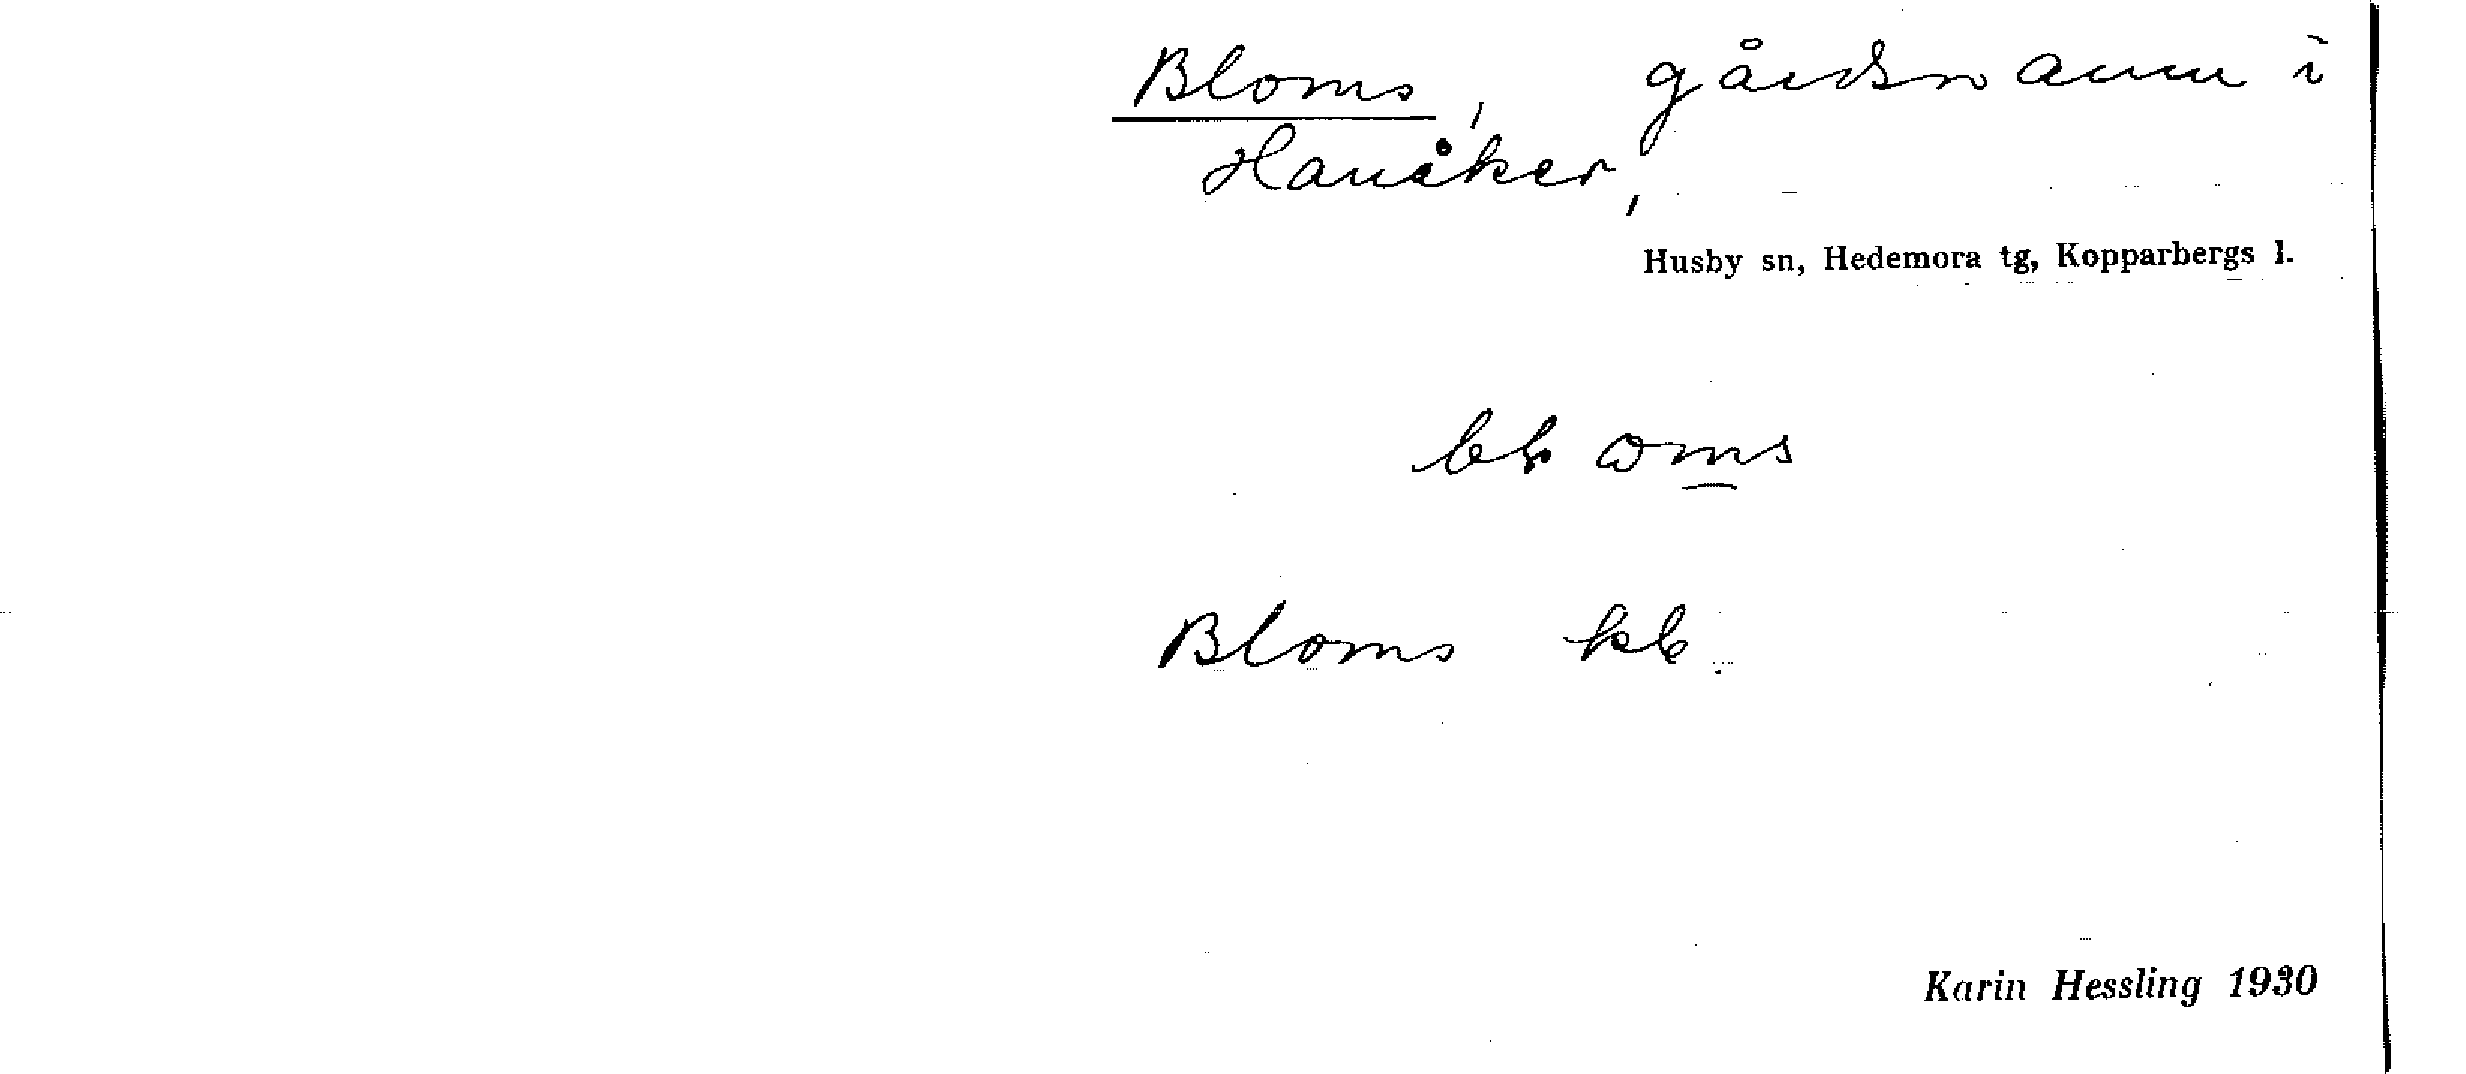 Bloms, gårdsnamn i
Hanåker,
Husby sn, Hedemora tg, Kopparbergs l.
Bloms kb.
Karin Hessling 1930